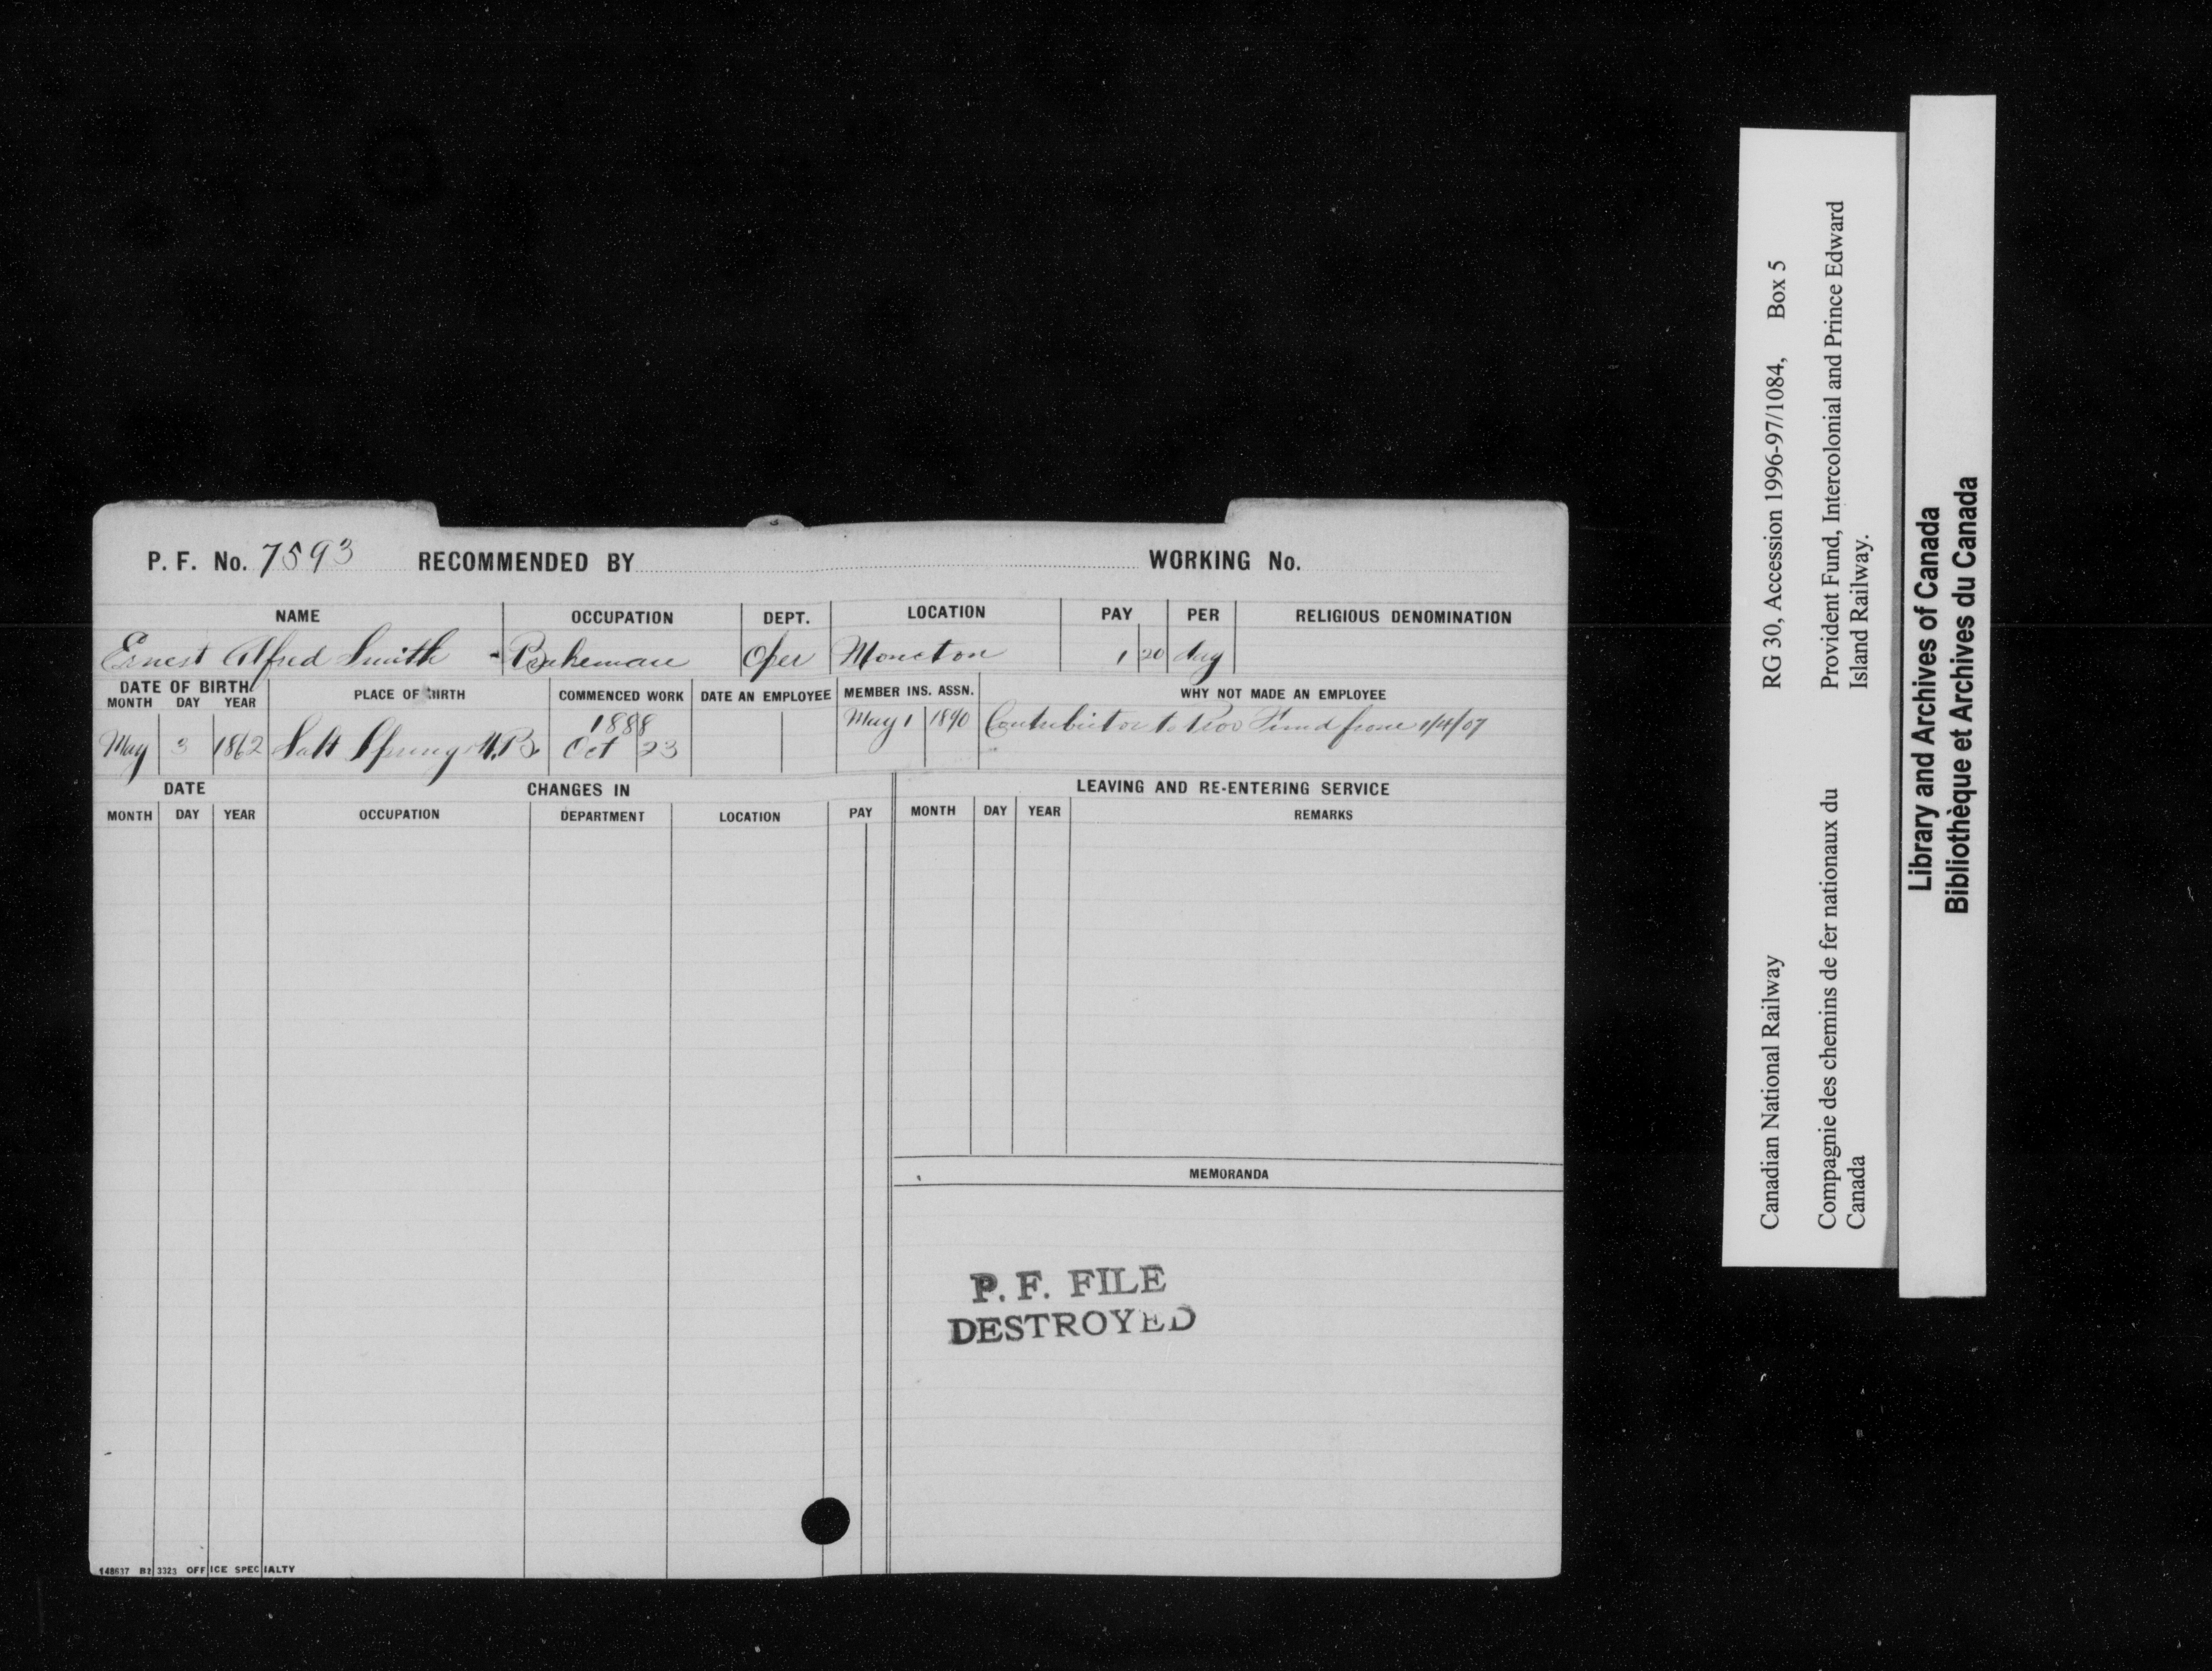 P. F. No. 7593 RECOMMENDED BY WORKING No.
NAME OCCUPATION DEPT. LOCATION PAY PER RELIGIOUS DENOMINATION
Ernest Alfred Smith - Brakeman Oper Moncton 1 20 day
DATE OF BIRTH PLACE OF BIRTH COMMENCED WORK DATE AN EMPLOYEE MEMBER INS. ASSN. WHY NOT MADE AN EMPLOYEE
MONTH DAY YEAR
1888 May 1 1890 Contributor to Prov Fund from 1/4/07
May 3 1862 Salt Springs N.B. Oct 23
DATE CHANGES IN LEAVING AND RE-ENTERING SERVICE
MONTH DAY YEAR OCCUPATION DEPARTMENT LOCATION PAY MONTH DAY YEAR REMARKS
MEMORANDA
P. F. FILE
DESTROYED
OFFICE SPECIALTY
Canadian National Railway RG 30, Accession 1996-97/1084, Box 5
Compagnie des chemins de fer nationaux du Provident Fund, Intercolonial and Prince Edward
Canada Island Railway.
Library and Archives of Canada
Bibliothèque et Archives du Canada